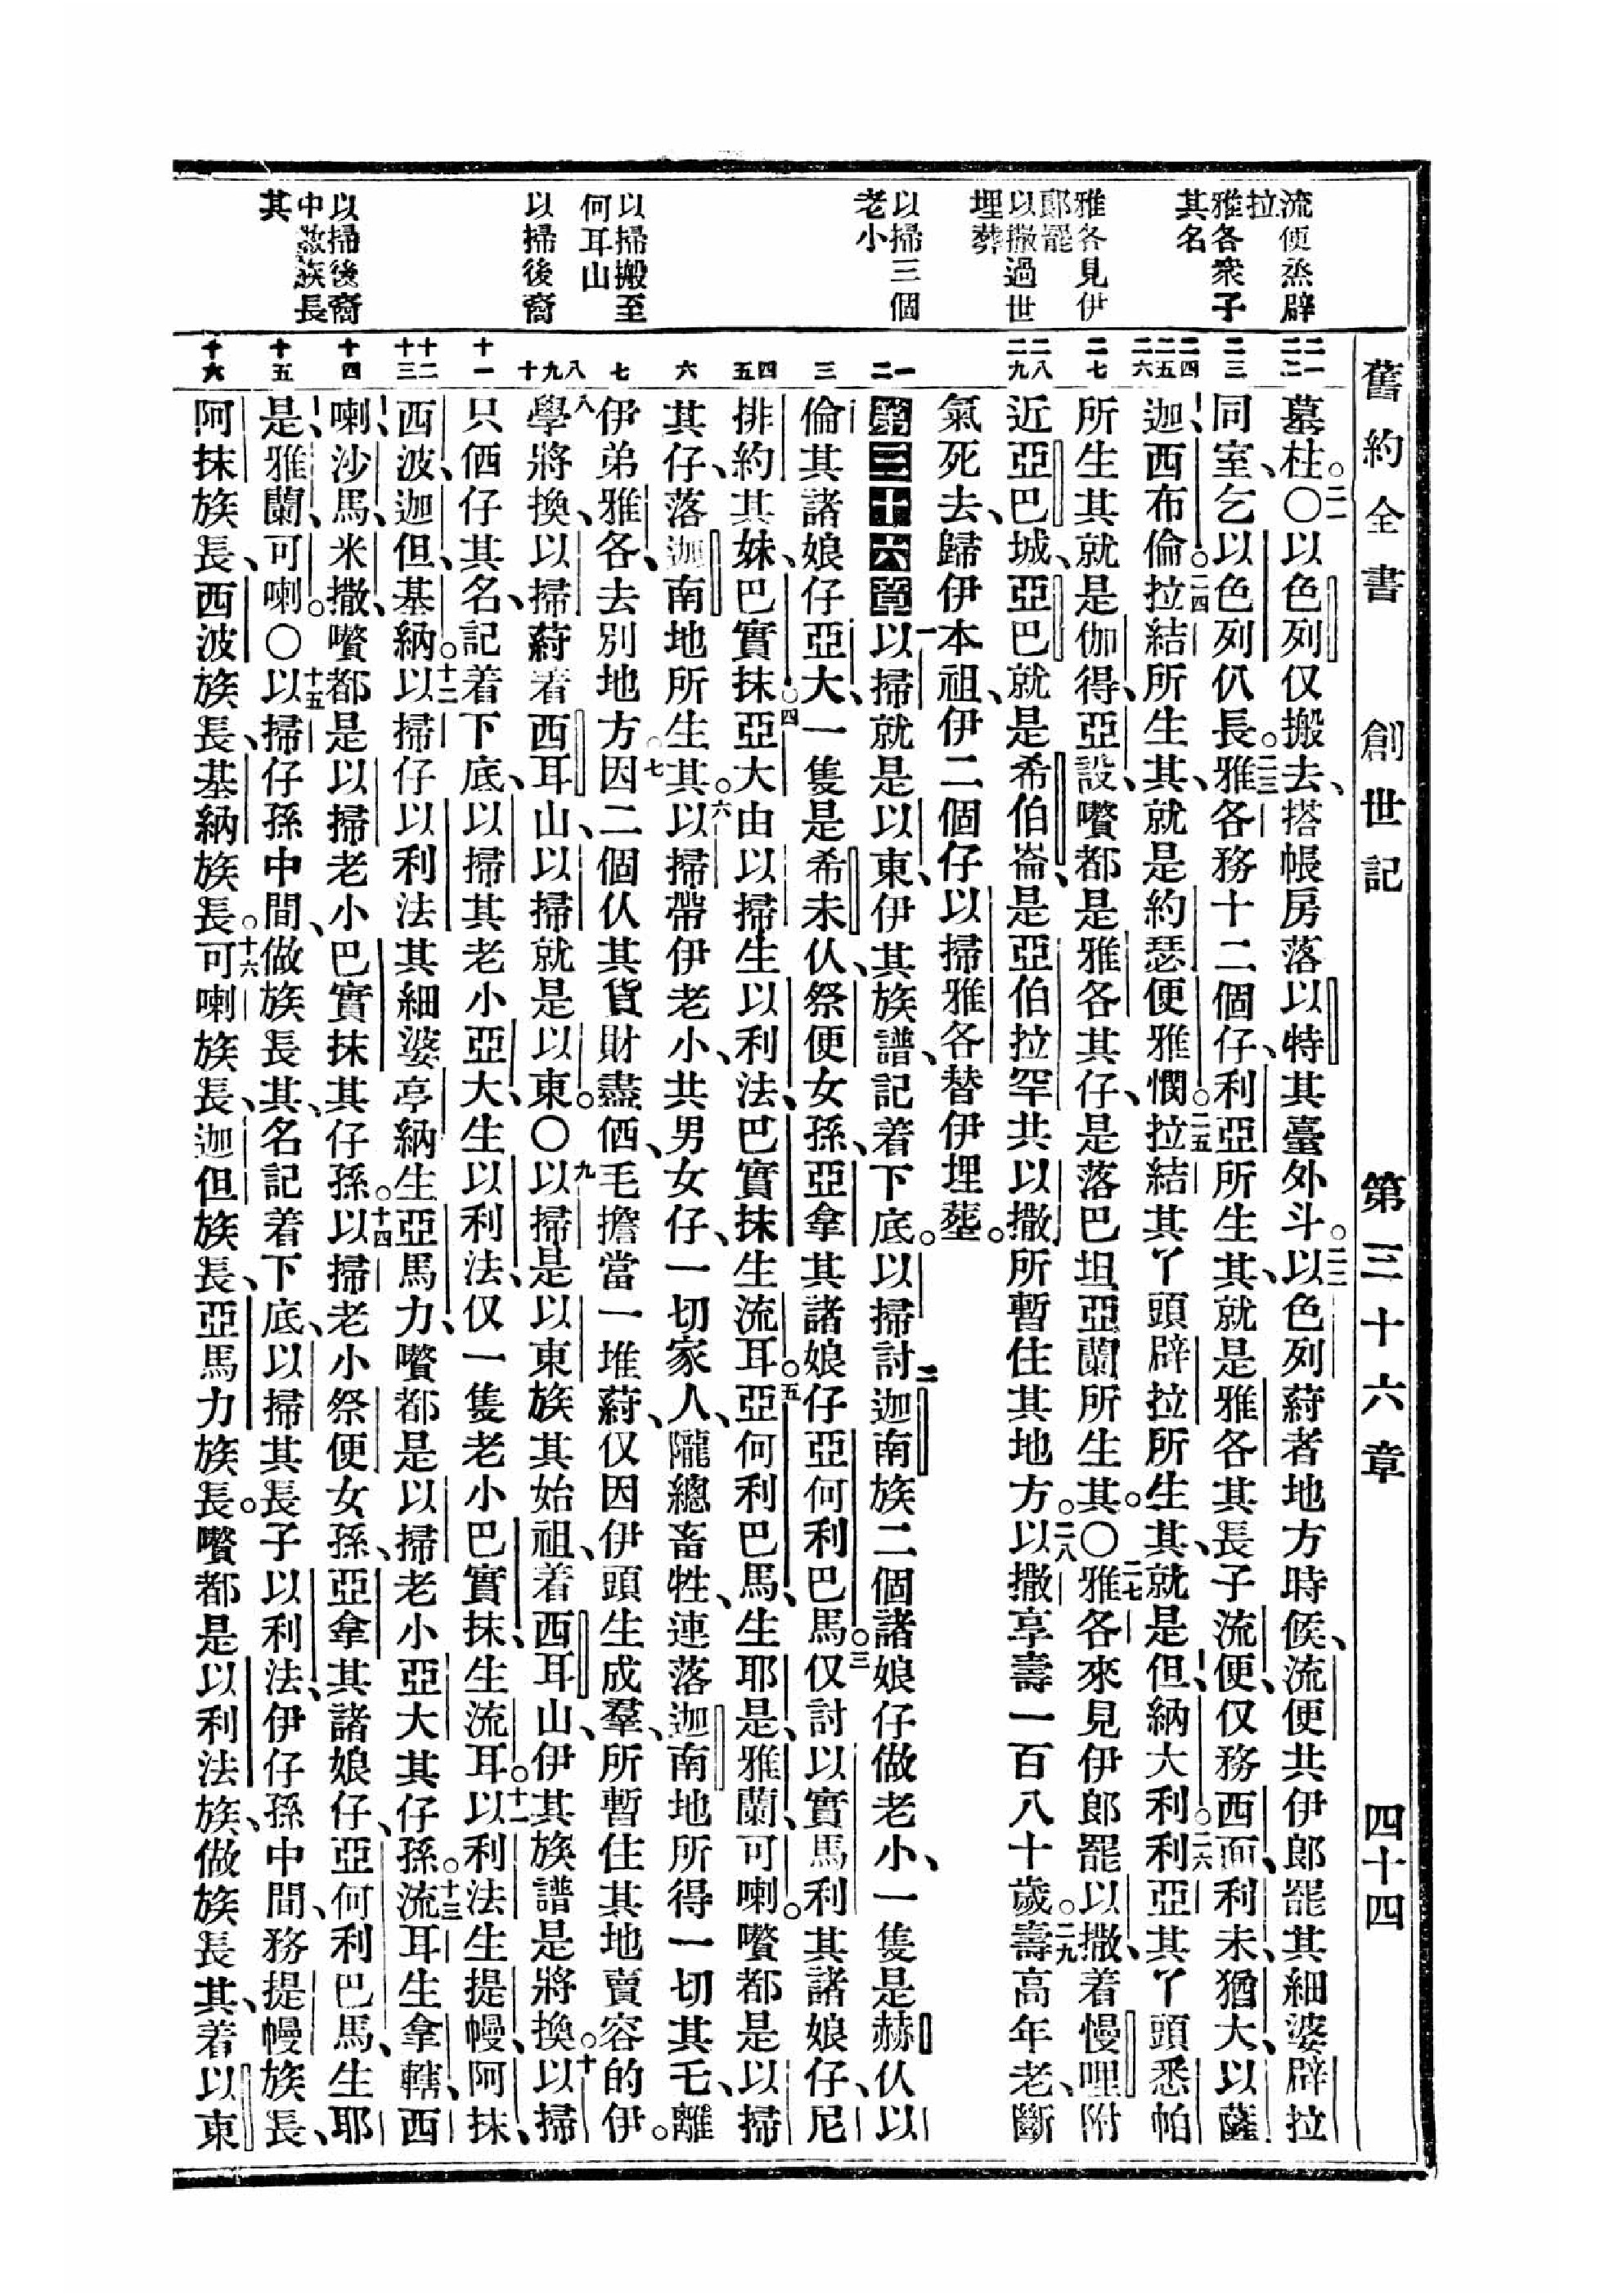 舊約全書 創世記 第三十六章 四十四
流便烝辟
拉
雅各衆子
其名
雅各見伊
郞罷
以撒過世
埋葬
以掃三個
老小
以掃搬至
何耳山
以掃後裔
以掃後裔
中做族長
其
二一 二二
二三
二四 二五 二六
二七
二八 二九
一 二
三
四 五
六
七
八 九 十
十一
十二 十三
十四
十五
十六
墓柱。○二一以色列仅搬去、搭帳房落以特其臺外斗。二二以色列蒔者地方時候、流便共伊郎罷其細婆辟拉
同室、乞以色列仈長。二三雅各務十二個仔、利亞所生其、就是雅各其長子流便、仅務西面、利未、猶大、以薩
迦、西布倫。二四拉結所生其、就是約瑟、便雅憫。二五拉結其丫頭辟拉所生其、就是但、納大利。二六利亞其丫頭悉帕
所生其就是伽得、亞設、嚽都是雅各其仔、是落巴坦亞蘭所生其。○二七雅各來見伊郎罷以撒、着慢哩附
近亞巴城、亞巴就是希伯崙、是亞伯拉罕共以撒所暫住其地方。二八以撒享壽一百八十歲。二九壽高年老、斷
氣死去、歸伊本祖、伊二個仔以掃雅各替伊埋塟。
第三十六章 一以掃就是以東、伊其族譜、記着下底。二以掃討迦南族二個諸娘仔做老小、一隻是赫仈以
倫其諸娘仔亞大、一隻是希未仈、祭便女孫、亞拿其諸娘仔亞何利巴馬。三仅討以實馬利其諸娘仔、尼
排約其妹、巴實抹。四亞大由以掃生以利法、巴實抹生流耳。五亞何利巴馬、生耶是、雅蘭、可喇。嚽都是以掃
其仔、落迦南地所生其。六以掃帶伊老小、共男女仔、一切家人、隴總畜牲、連落迦南地所得一切其乇、離
伊弟雅各、去別地方。七因二個仈其貨財盡価、毛擔當一堆蒔、仅因伊頭生成羣、所暫住其地賣容的伊。
八學將換、以掃蒔着西耳山、以掃就是以東。○九以掃是以東族其始祖、着西耳山、伊其族譜是將換。十以掃
只価仔其名、記着下底、以掃其老小亞大、生以利法、仅一隻老小巴實抹、生流耳。十一以利法生提幔、阿抹、
西波、迦但、基納。十二以掃仔以利法其細婆亭納生亞馬力、嚽都是以掃老小亞大其仔孫。十三流耳生拿轄、西
喇、沙馬、米撒、嚽都是以掃老小巴實抹其仔孫。十四以掃老小祭便女孫、亞拿其諸娘仔、亞何利巴馬、生耶
是、雅蘭、可喇。○十五以掃仔孫中間、做族長其、名記着下底、以掃其長子以利法、伊仔孫中間、務提幔族長、
阿抹族長、西波族長、基納族長。十六可喇族長、迦但族長、亞馬力族長。嚽都是以利法族、做族長其、着以東